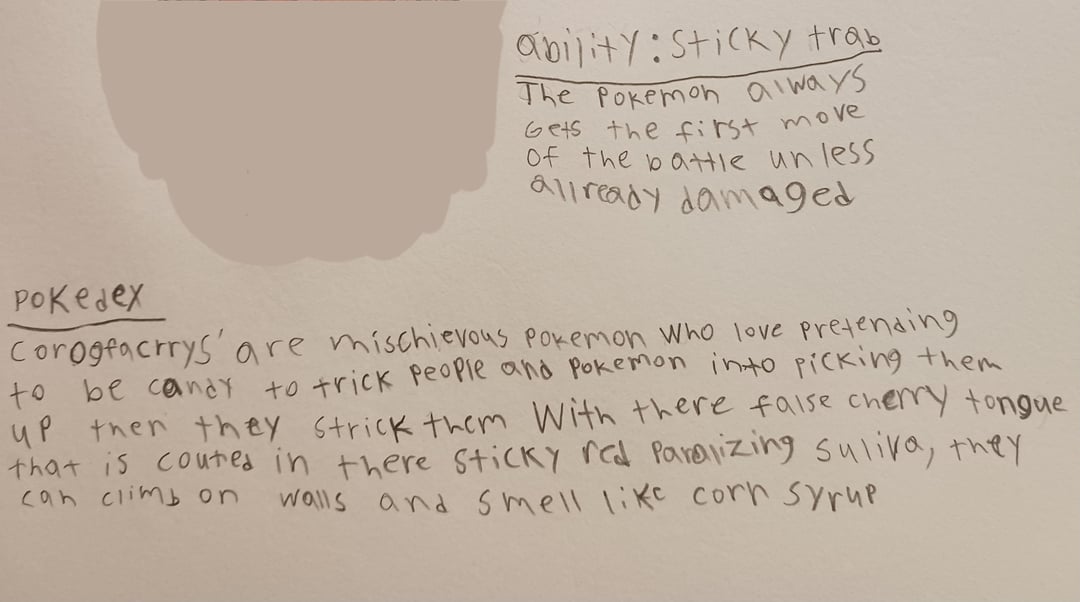 ability: Sticky trab
The Pokemon always
Gets the first move
of the battle unless
allready damaged
Pokedex
corogfacrrys' are mischievous Pokemon who love pretending
to be candy to trick people and Pokemon into picking them
up then they strick them With there false cherry tongue
that is couted in there sticky red Paralizing suliva, they
can climb on walls and smell like corn syrup